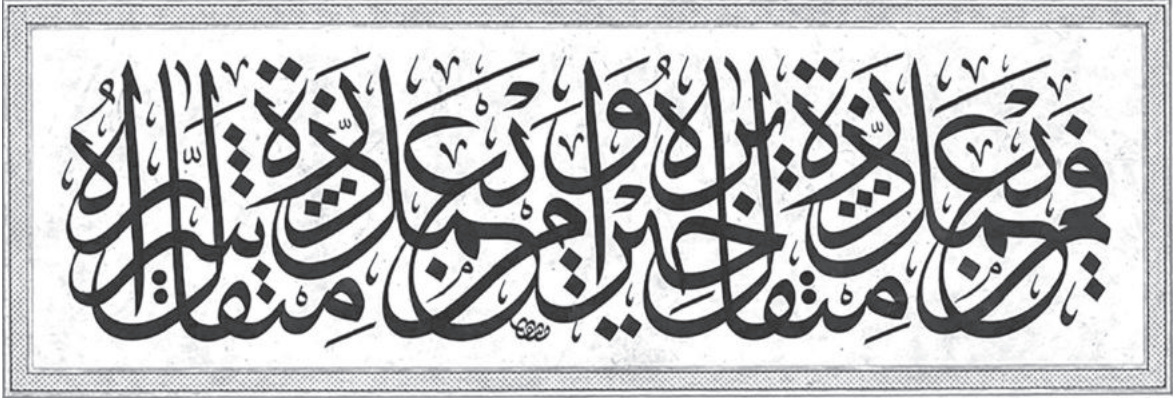 فَمَن يَعْمَلْ مِثْقَالَ ذَرَّةٍ خَيْرًا يَرَهُ وَمَن يَعْمَلْ مِثْقَالَ ذَرَّةٍ شَرًّا يَرَهُ